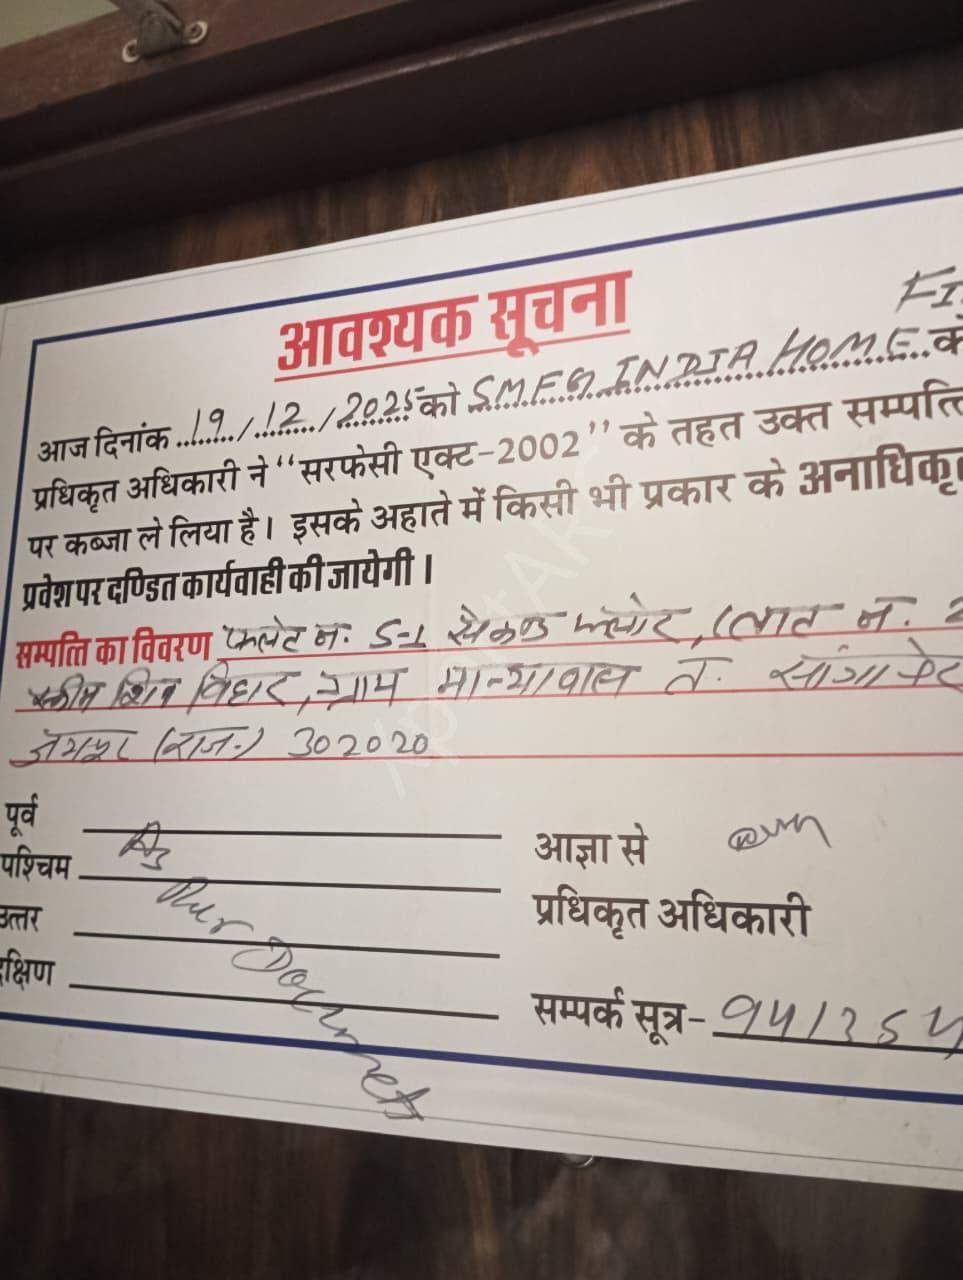 आवश्यक सूचना
FI
आज दिनांक 19/12/2025 को SMFG INDIA HOME
प्रधिकृत अधिकारी ने "सरफेसी एक्ट-2002" के तहत उक्त सम्पत्ति
पर कब्जा ले लिया है। इसके अहाते में किसी भी प्रकार के अनाधिकृत
प्रवेश पर दण्डित कार्यवाही की जायेगी।
सम्पत्ति का विवरण फ्लेट न. S-1 सेकण्ड फ्लोर, न.
स्कीम शिव विहार, ग्राम मान्यावास त. सांगानेर
जयपुर (राज.) 302020
पूर्व
पश्चिम
उत्तर
दक्षिण
As Per Documets
आज्ञा से
प्रधिकृत अधिकारी
सम्पर्क सूत्र-